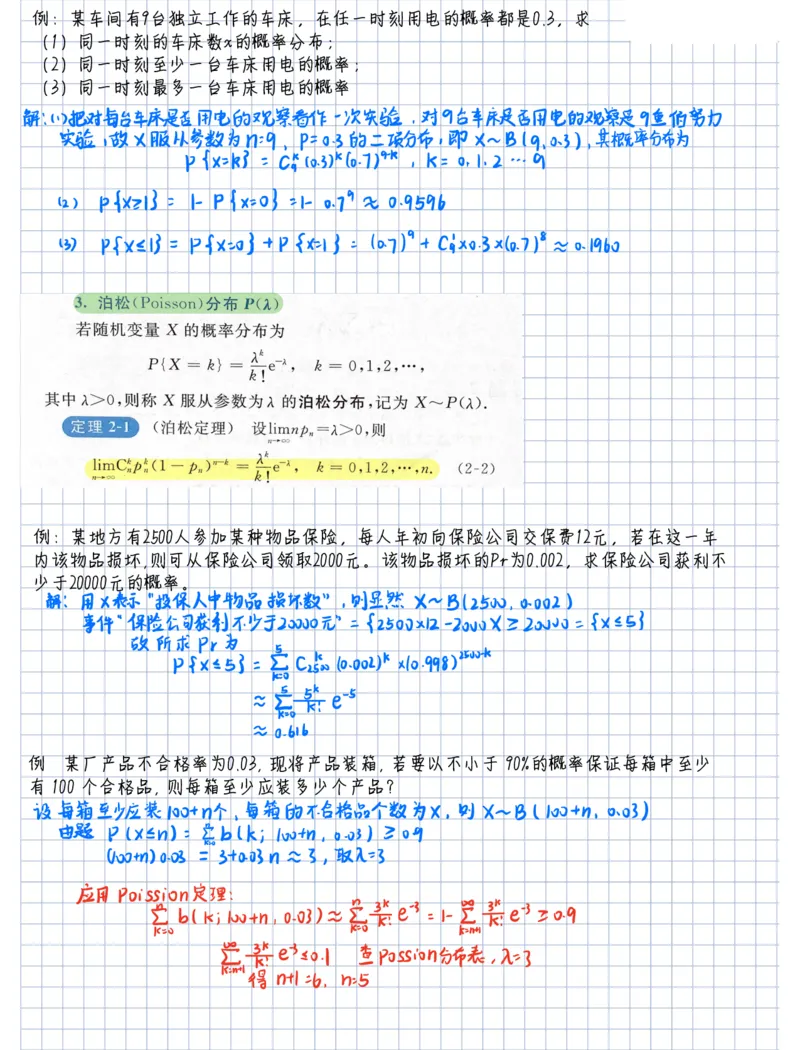 例：某车间有9台独立工作的车床，在任一时刻用电的概率都是0.3，求
(1) 同一时刻的车床数x的概率分布；
(2) 同一时刻至少一台车床用电的概率；
(3) 同一时刻最多一台车床用电的概率
解：(1)把对每台车床是否用电的观察看作一次实验，对9台车床是否用电的观察是9重伯努力
实验，故X服从参数为n=9，P=0.3的二项分布，即X~B(9,0.3)，其概率分布为
P{x=k} = C₉ᵏ (0.3)ᵏ (0.7)⁹⁻ᵏ , k= 0,1,2 … 9
(2) P{x≥1} = 1- P{x=0} =1- 0.7⁹ ≈ 0.9596
(3) P{x≤1} = P{x=0} + P{x=1} = (0.7)⁹ + C₉¹×0.3×(0.7)⁸ ≈ 0.1960
3. 泊松(Poisson)分布 P(λ)
若随机变量 X 的概率分布为
P{X = k} = λᵏ/k! e^(-λ), k = 0,1,2,…,
其中λ>0,则称 X 服从参数为λ的泊松分布,记为 X～P(λ).
定理 2-1 （泊松定理） 设lim(n→∞) npₙ=λ>0,则
lim(n→∞) Cₙᵏpₙᵏ(1－pₙ)ⁿ⁻ᵏ = λᵏ/k! e^(-λ), k = 0,1,2,…,n. (2-2)
例：某地方有2500人参加某种物品保险，每人年初向保险公司交保费12元，若在这一年
内该物品损坏,则可从保险公司领取2000元。该物品损坏的Pr为0.002，求保险公司获利不
少于20000元的概率。
解：用X表示“投保人中物品损坏数”，则显然 X~B(2500, 0.002)
事件“保险公司获利不少于20000元” = {2500×12-2000X ≥ 20000 = {x≤5}
故所求 Pr 为
P{x≤5} = ∑(k=0→5) C₂₅₀₀ᵏ (0.002)ᵏ ×(0.998)²⁵⁰⁰⁻ᵏ
≈ ∑(k=0→5) 5ᵏ/k! e⁻⁵
≈ 0.616
例 某厂产品不合格率为0.03, 现将产品装箱, 若要以不小于 90%的概率保证每箱中至少
有 100 个合格品, 则每箱至少应装多少个产品?
设每箱至少应装100+n个，每箱的不合格品个数为X，则 X~B(100+n, 0.03)
由题 P(X≤n) = ∑(k=0→n) b(k; 100+n, 0.03) ≥ 0.9
(100+n) 0.03 = 3+0.03n ≈ 3 , 取λ=3
应用 Poission定理:
∑(k=0→n) b(k; 100+n, 0.03) ≈ ∑(k=0→n) 3ᵏ/k! e⁻³ = 1- ∑(k=n+1→∞) 3ᵏ/k! e⁻³ ≥ 0.9
∑(k=n+1→∞) 3ᵏ/k! e⁻³ ≤ 0.1 查 Possion分布表, λ=3
得 n+1=6, n=5